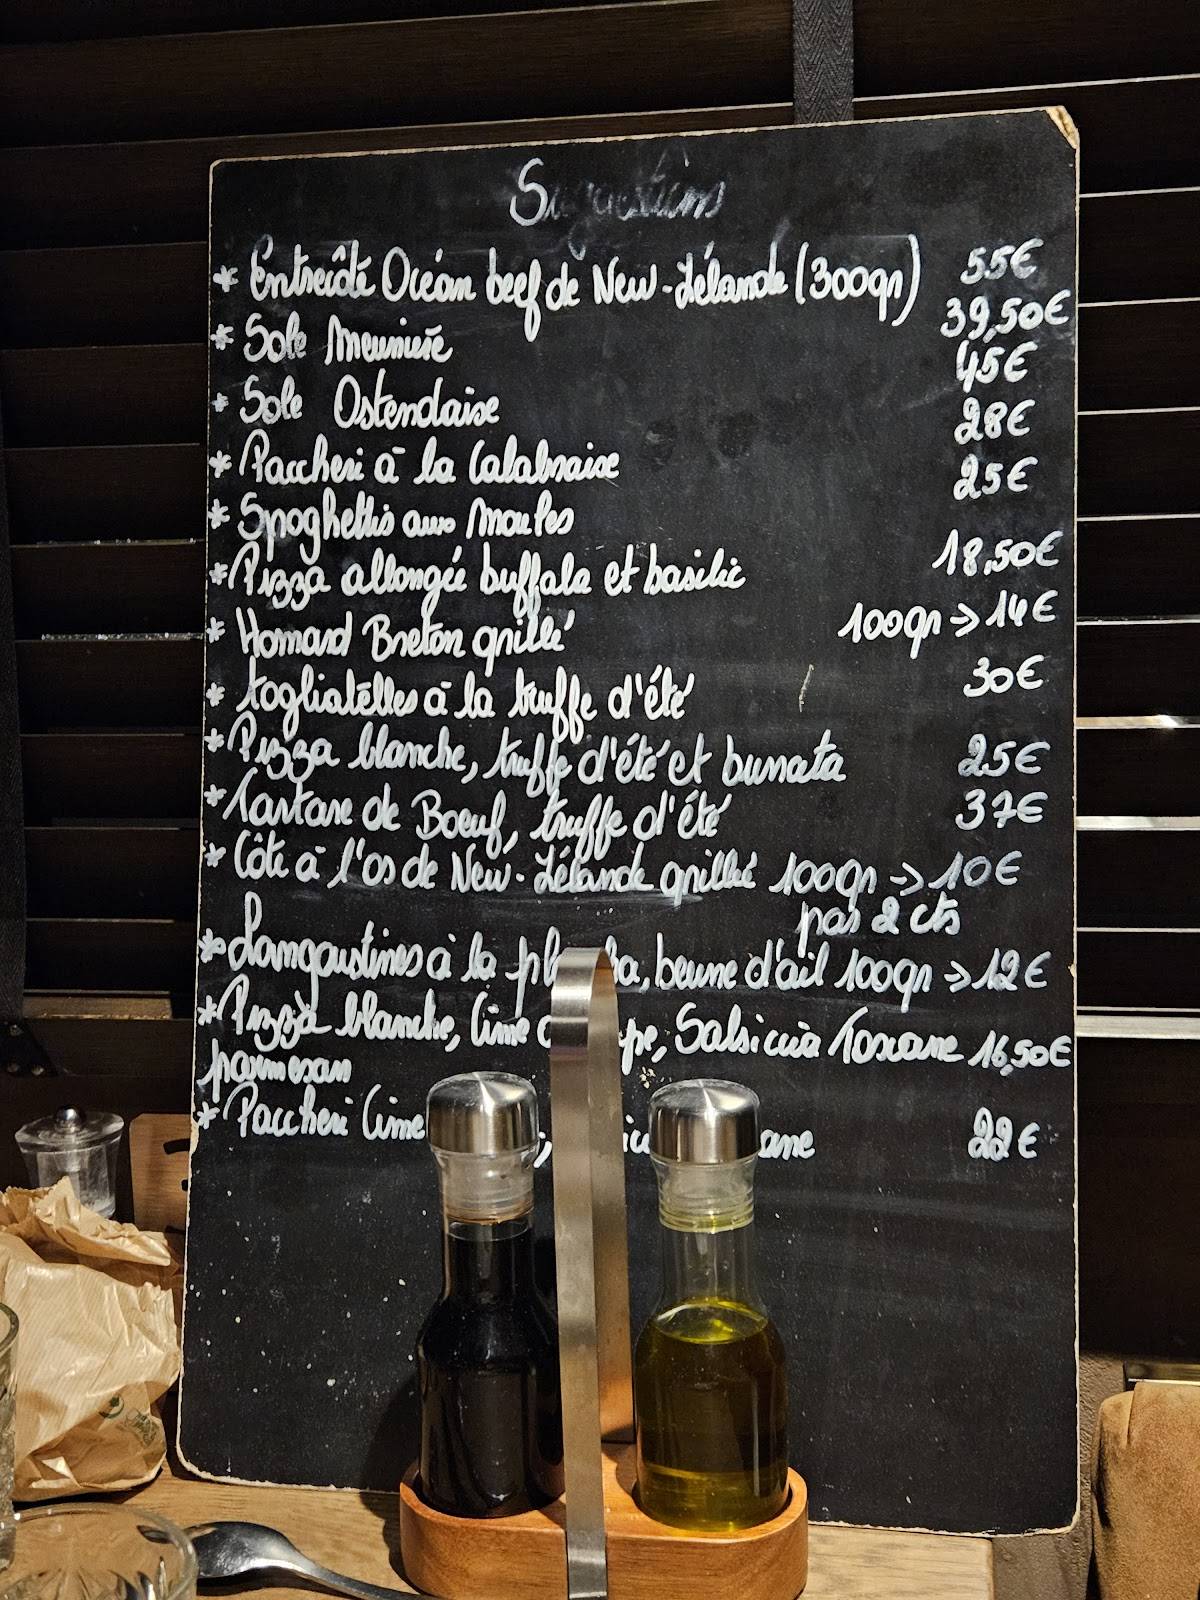 Suggestions
* Entrecôte Océan beef de New-Zélande (300gr) 55€
* Sole Meunière 39,50€
* Sole Ostendaise 45€
* Paccheri à la Calabraise 28€
* Spaghettis aux Moules 25€
* Pizza allongée buffala et basilic 18,50€
* Homard Breton grillé 100gr -> 14€
* tagliatelles à la truffe d'été 30€
* Pizza blanche, truffe d'été et burrata 25€
* Tartare de Boeuf, truffe d'été 37€
* Côte à l'os de New-Zélande grillée 100gr -> 10€
par 2 cts
* Langoustines à la pl ha, beurre d'ail 100gr -> 12€
* Pizza blanche, Cime pe, Salsiccia Toscane 16,50€
parmesan
* Paccheri Cime , ane 22€